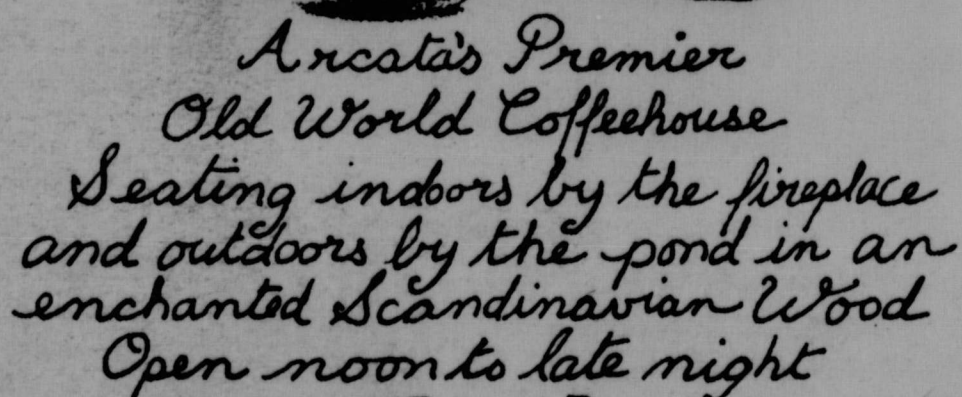 Arcata's Premier
Old World Coffeehouse
Seating indoors by the fireplace
and outdoors by the pond in an
enchanted Scandinavian Wood
Open noon to late night